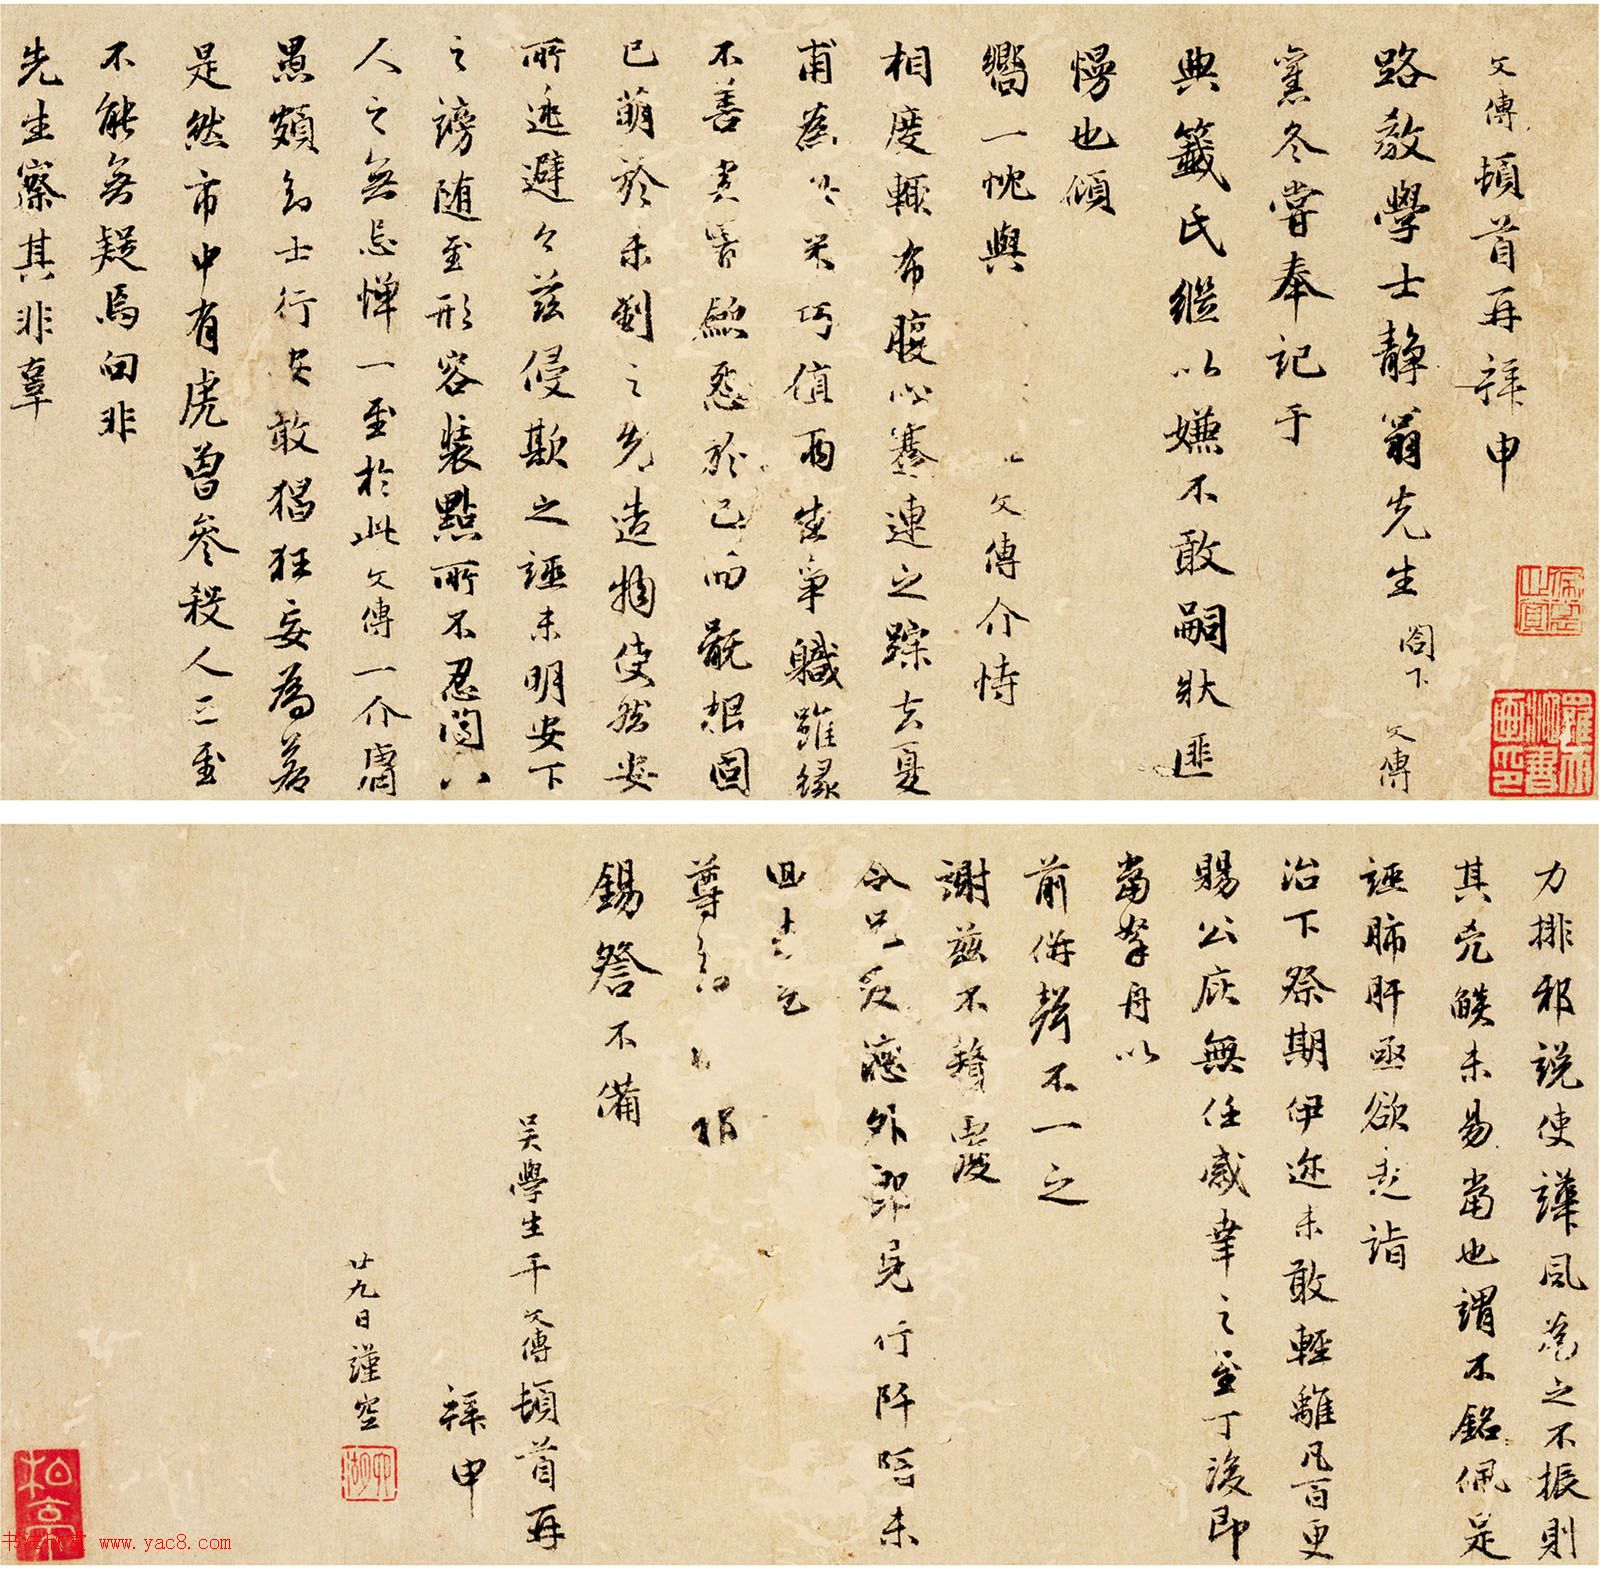 文傳頓首再拜申
路教學士靜翁先生閤下文傳
舊冬嘗奉記于
典籤氏繼以嫌不敢嗣狀匪
慢也傾
嚮一忱與文傳介恃
相度輒布腹心蹇連之蹤去夏
甫為米巧值兩造爭職雖緣
不善於己而翫根固
已萌於未到之先造物使然安
所逃避今茲侵欺之誣未明安下
之謗隨至形容裝點所不忍聞以
人之無忌憚一至於此文傳一介庸
愚頗知士行安敢猖狂妄為若
是然市中有虎曾參殺人三至
不能無疑焉向非
先生察其非辜
力排邪說使譁風為之不振則
其兇燄未易當也謂不銘佩是
誣肺肝亟欲走詣
治下祭期伊邇未敢輕離凡百更
賜公庇無任感幸之至丁後即
當拏舟以
前併聲不一之
謝茲不籍覆
令兄反應外郎見行阡陌未
回
尊
錫答不備
吳學生干文傳頓首再
拜申
廿九日謹空
書法欣賞 www.yac8.com